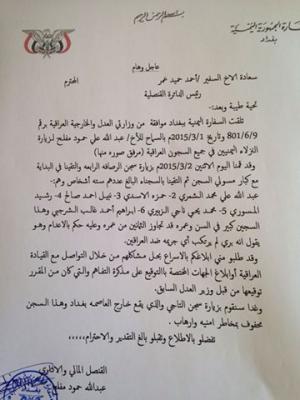 بسم الله الرحمن الرحيم
بغداد
عاجل وهام
سعادة الاخ السفير /أحمد حميد عمر
المحترم
رئيس الدائرة القنصلية
تحية طيبة وبعد:-
تلقت السفارة اليمنية ببغداد موافقة من وزارتي العدل والخارجية العراقية برقم
801/6/9 وتاريخ 2015/3/1م بالسماح للأخ/ عبد الله علي حمود مفلح لزيارة
النزلاء اليمنيين في جميع السجون العراقية (مرفق صوره منها)
وقد قمنا اليوم الاثنين 2015/3/2م بزيارة سجن الرصافه الرابعه والتقينا في البداية
مع كبار مسولي السجن ثم التقينا بالسجناء البالغ عددهم سته أشخاص وهم:-
عبد الله علي محمد الشمري 2- حمزه الاسدي 3- نبيل احمد صالح 4- رشيد
المسوري 5- محمد يحي ناجي الزبيري 6- ابراهيم أحمد غالب الشرجبي وهذا
السجين كبير في السن وعمره قد تجاوز الثمانين من عمره وعليه حكم بالاعدام وهو
يقول انه بري لم يرتكب أي جريمه ضد العراقين.
وقد طلبو مني ابلاغكم بالاسراع بحل مشكلتهم من خلال التواصل مع القيادة
العراقية أو ابلاغ الجهات المختصة بالتوقيع على مذكرة التفاهم والتي كان من المقرر
توقيعها من قبل وزير العدل السابق.
وغدا سنقوم بزيارة سجن التاجي والذي يقع خارج العاصمه بغداد وهذا السجن
محفوف بمخاطر امنيه وارهاب .
تفضلو بالاطلاع وتقبلو بالغ التقدير والاحترام،،،،
القنصل المالي والاداري
عبدالله حمود مفلح